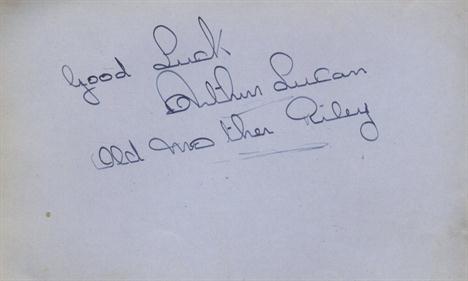 Good Luck
Arthur Lucan
Old Mother Riley